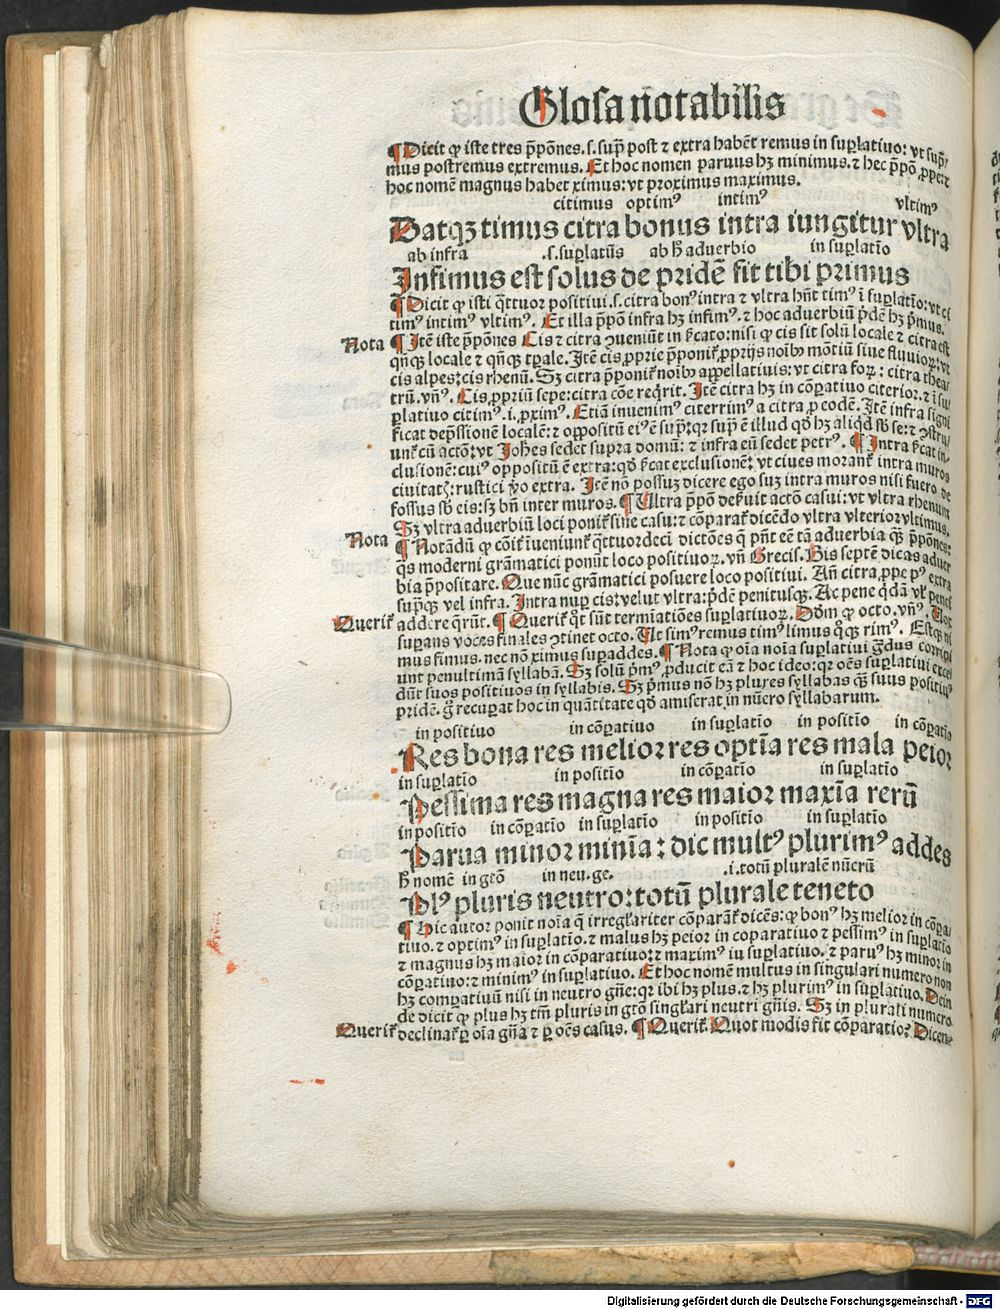 Glosa notabilis
¶ Dicit ꝙ iste tres p̄pōnes.s.sup̄ post ⁊ extra habēt remus in suꝑlatiuo: vt sup̄/
mus postremus extremus. Et hoc nomen paruus hꝫ minimus.⁊ hec p̄pō ꝓpe:⁊
hoc nomē magnus habet ximus: vt proximus maximus.
citimus optimꝰ intimꝰ vltimꝰ
Datqꝫ timus citra bonus intra iungitur vltra
ab infra .s.suꝑlatiūs ab h̄ aduerbio in suꝑlatīo
Infimus est solus de pridē fit tibi primus
¶ Dicit ꝙ isti q̄ttuor positiui.s.citra bonꝰ intra ⁊ vltra hn̄t timꝰ ī suꝑlatīo: vt ci
timꝰ intimꝰ vltimꝰ. Et illa p̄pō infra hꝫ infimꝰ.⁊ hoc aduerbiū p̄dē hꝫ p̄mus.
Nota ¶ Itē iste p̄pōnes Cis ⁊ citra ꝯueniūt in s̄cato: nisi ꝙ cis sit solū locale ⁊ citra est
qn̄qꝫ locale ⁊ qn̄qꝫ tꝑale. Itē cis ꝓprie p̄ponit̄ ꝓprijs noībꝰ mōtiū siue fluuioꝝ: vt
cis alpes: cis rhenū. Sꝫ citra p̄ponit̄ noībꝰ appellatiuis: vt citra foꝝ: citra thea/
trū. vn̄ꝰ. Cis ꝓpriū sepe: citra cōe req̄rit. Itē citra hꝫ in cōꝑatiuo citerior.⁊ ī su/
ꝑlatiuo citimꝰ.i.ꝓximꝰ. Etiā inuenimꝰ citerrimꝰ a citra ꝓ eodē. Itē infra signi
ficat dep̄ssionē localē: ⁊ oppositū eiꝰ ē sup̄: qꝛ sup̄ ē illud qd̄ hꝫ aliqd̄ sb̄ se: ⁊ ꝯstru/
unt̄ cū actō: vt Johēs sedet supra domū: ⁊ infra eū sedet petrꝰ. ¶ Intra s̄cat in/
clusionē: cuiꝰ oppositū ē extra: qd̄ s̄cat exclusionē: vt ciues morant̄ intra muros
ciuitatꝭ: rustici ꝟo extra. Itē nō possuꝫ dicere ego suꝫ intra muros nisi fuero de
fossus sb̄ eis: sꝫ bn̄ inter muros. ¶ Ultra p̄pō deẜuit actō casui: vt vltra rhenum
Sꝫ vltra aduerbiū loci ponit̄ sine casu: ⁊ cōparat̄ dicēdo vltra vlterior vltimus.
Nota ¶ Notādū ꝙ cōit̄ īueniunt̄ q̄ttuordecī dictōes q̄ pn̄t eē tā aduerbia qꝫ̄ p̄pōnes:
q̄s moderni grāmatici ponūt loco positiuoꝝ. vn̄ Grecis. Bis septē dicas aduer
bia p̄positare. Que nūc grāmatici posuere loco positiui. An̄ citra ꝓpe pꝰ extra
sup̄qꝫ vel infra. Intra nuꝑ cis: velut vltra: p̄dē penitusqꝫ. Ac pene q̄dā vl̄ penes
Querit̄ addere q̄rūt. ¶ Querit̄ q̄t sūt termīatiōes suꝑlatiuoꝝ. Dōm ꝙ octo. vn̄ꝰ. Uox
suꝑans voces finales ꝯtinet octo. Ut simꝰ remus timꝰ limus q̄qꝫ rimꝰ. Estqꝫ ni
mus fimus. nec nō ximus suꝑaddes. ¶ Nota ꝙ oīa noīa suꝑlatiui ḡdus corripi
unt penultimā syllabā. Sꝫ solū p̄mꝰ ꝓducit eā ⁊ hoc ideo: qꝛ oēs suꝑlatiui exce
dūt suos positiuos in syllabis. Sꝫ p̄mus nō hꝫ plures syllabas qꝫ̄ suus positiuꝰ
pridē. g̊ recuꝑat hoc in quātitate qd̄ amiserat in nūero syllabarum.
in positiuo in cōꝑatiuo in suꝑlatīo in positīo in cōꝑatīo
Res bona res melior res optīa res mala peior
in suꝑlatīo in positīo in cōꝑatīo in suꝑlatīo
Pessima res magna res maior maxīa rerū
in positīo in cōꝑatīo in suꝑlatīo in positīo in suꝑlatīo
Parua minor minīa: dic multꝰ plurimꝰ addes
h̄ nomē in gtō in neu.ge. .i.totū pluralē nūerū
Plꝰ pluris neutro: totū plurale teneto
¶ Hic autor ponit noīa q̄ irregl̄ariter cōparāt̄ dicēs: ꝙ bonꝰ hꝫ melior in cōꝑa/
tiuo.⁊ optimꝰ in suꝑlatīo.⁊ malus hꝫ peior in coparatiuo ⁊ pessimꝰ in suꝑlatīo
⁊ magnus hꝫ maior in cōparatiuo: ⁊ maximꝰ iu suꝑlatiuo.⁊ paruꝰ hꝫ minor in
cōꝑatiuo: ⁊ minimꝰ in suꝑlatiuo. Et hoc nomē multus in singulari numero non
hꝫ comꝑatiuū nisi in neutro gn̄e: qꝛ ibi hꝫ plus.⁊ hꝫ plurimꝰ in suꝑlatiuo. Dein
de dicit ꝙ plus hꝫ tm̄ pluris in gtō singl̄ari neutri gn̄is. Sꝫ in plurali numero
Querit̄ declinat̄ ꝑ oīa gn̄a ⁊ ꝑ oēs casus. ¶ Querit̄. Quot modis fit cōparatio? Dicen/
Digitalisierung gefördert durch die Deutsche Forschungsgemeinschaft - DFG